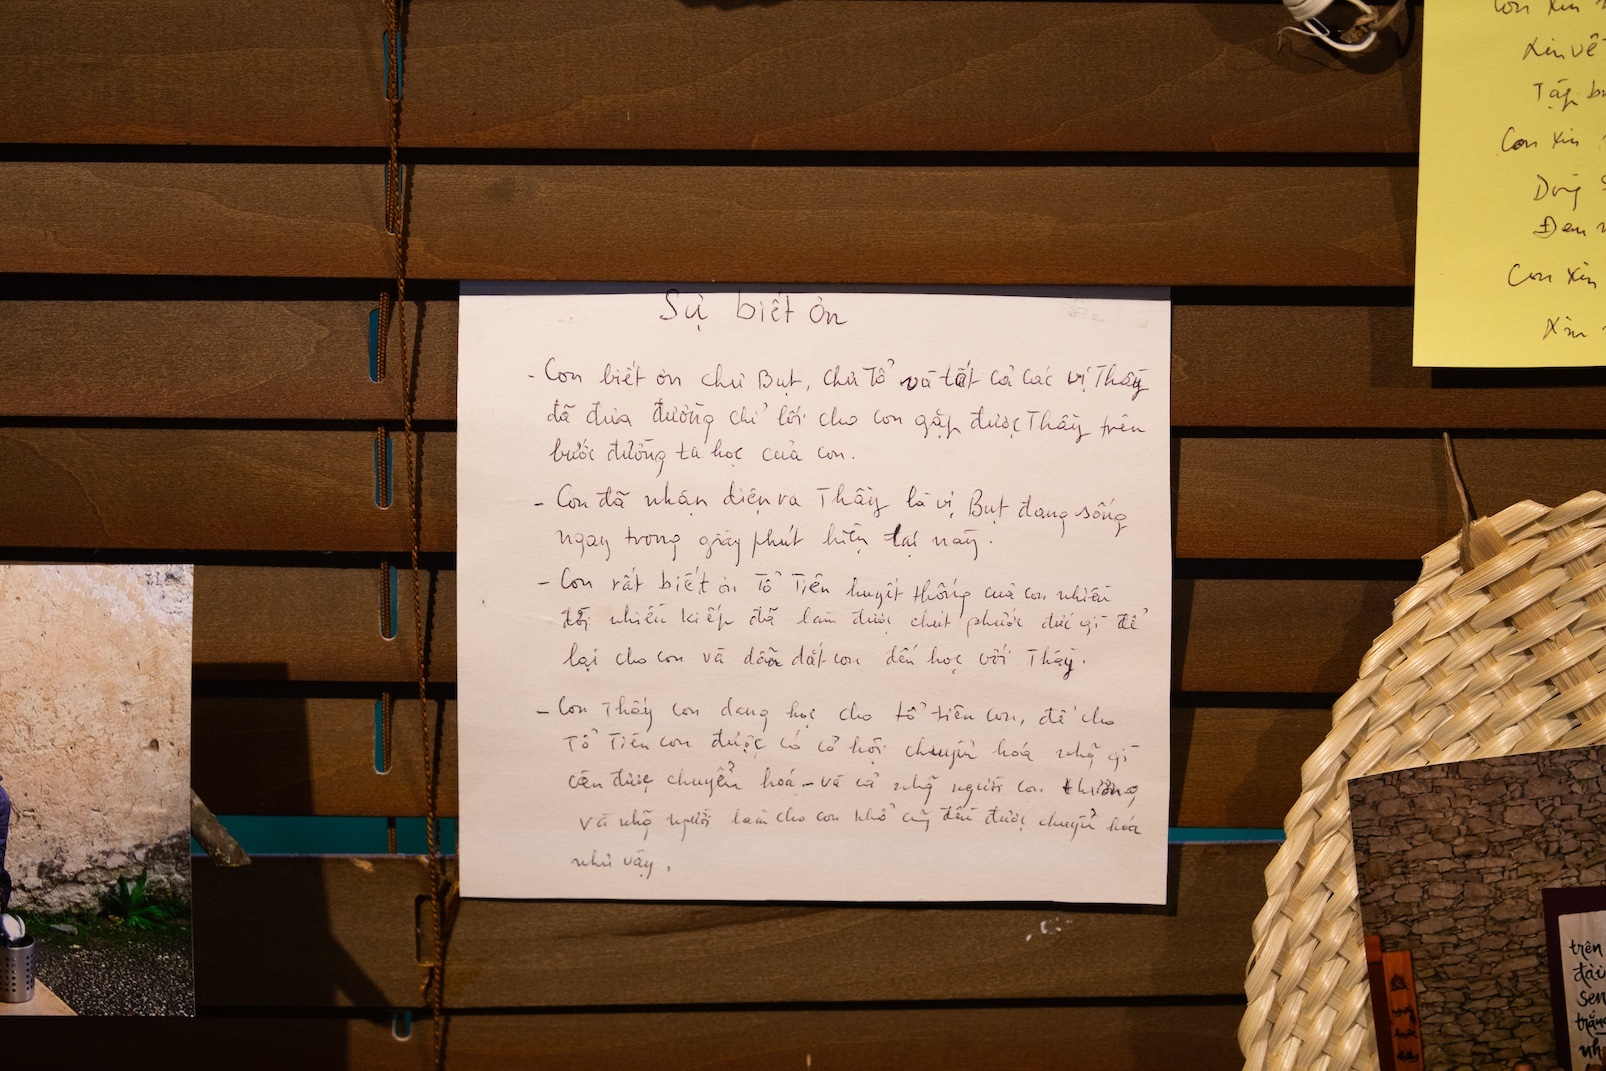 Sự biết ơn
- Con biết ơn chư Bụt, chư Tổ và tất cả các vị Thầy
đã đưa đường chỉ lối cho con gặp được Thầy trên
bước đường tu học của con.
- Con đã nhận diện ra Thầy là vị Bụt đang sống
ngay trong giây phút hiện tại này.
- Con rất biết ơn Tổ Tiên huyết thống của con nhiều
đời nhiều kiếp đã làm được chút phước đức gì để
lại cho con và dẫn dắt con đến học với Thầy.
- Con Thấy con đang học cho tổ tiên con, để cho
Tổ Tiên con được có cơ hội chuyển hoá nhg̃ gì
cần được chuyển hoá - và cả nhg̃ người con thương
và nhg̃ người làm cho con khổ cũg đều được chuyển hóa
như vậy.
Con xin
Xin về
Tập
Con xin
Dòng
Đem
Con xin
Xin
trên
đài
sen
trắng